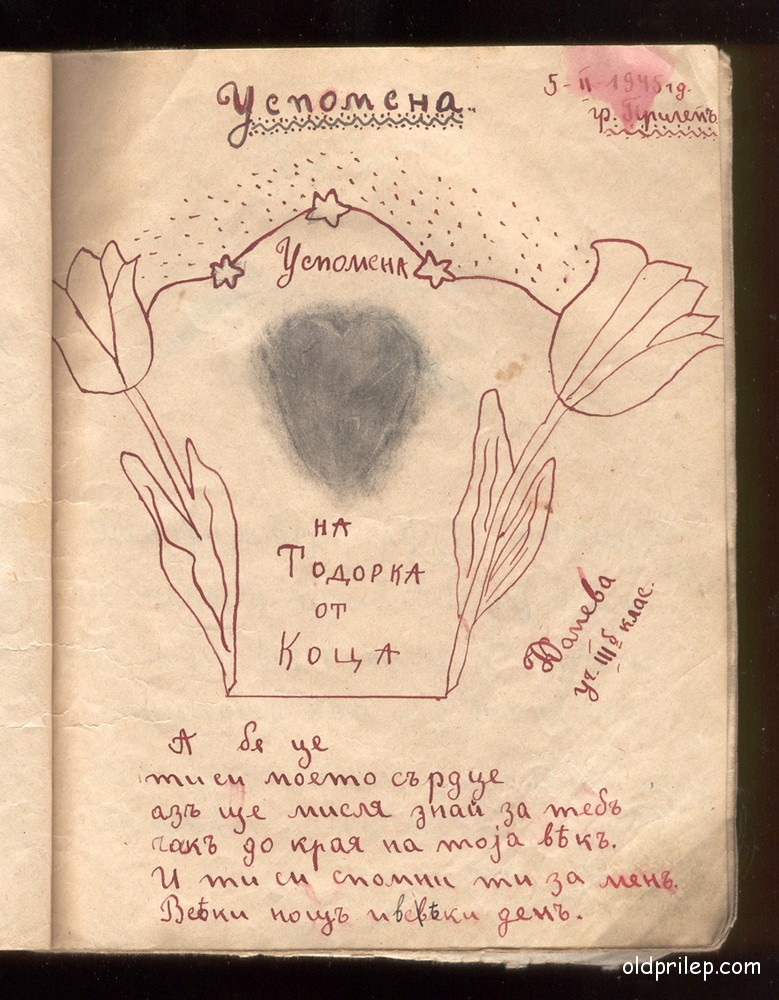 Успомена..
5-II-1945 гд.
гр. Прилепъ
Успомена
НА
ТОДОРКА
ОТ
КОЦА
уч. III б клас.
А бя це
ти си моето сърдце
азъ ще мисля знай за тебъ
чакъ до края на моја вѣкъ.
И ти си спомни ти за менъ.
Веѣки нощъ и вѣки денъ.
oldprilep.com